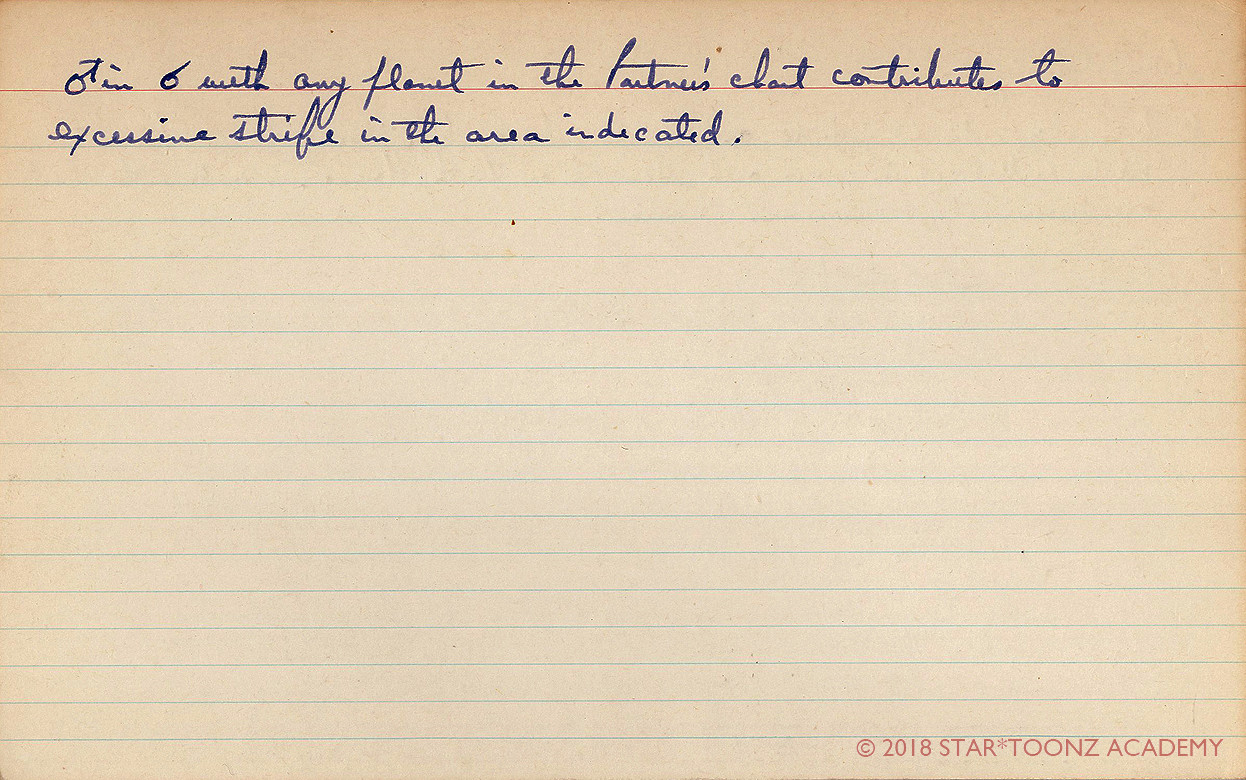 ♂ in ☌ with any planet in the Partner's chart contributes to
excessive strife in the area indicated.
© 2018 STAR*TOONZ ACADEMY